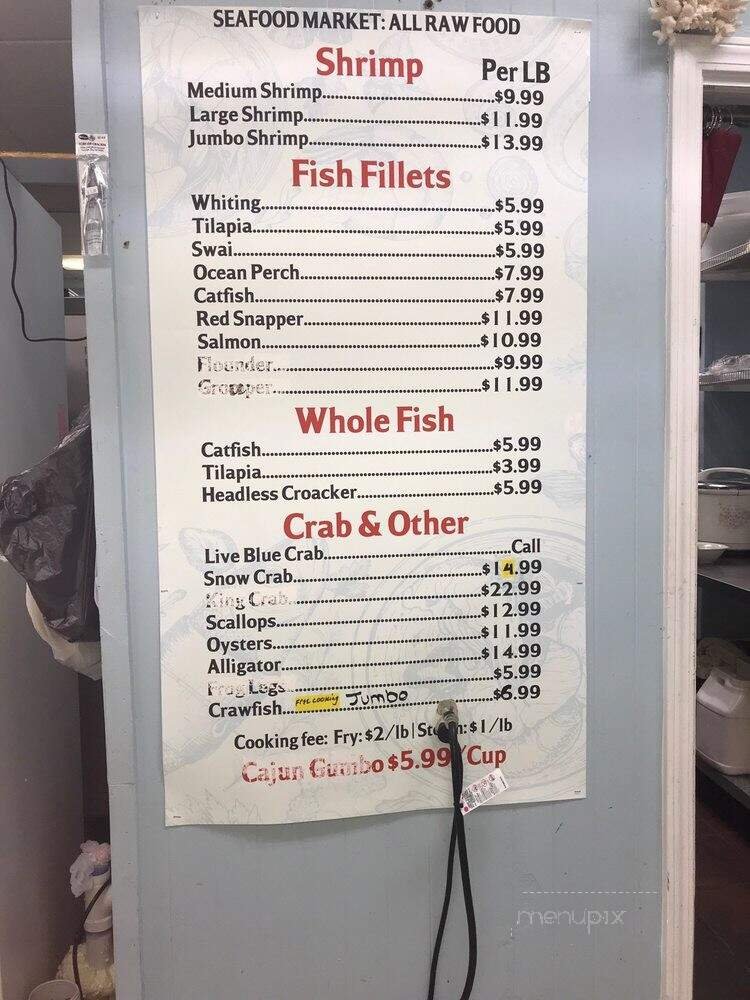 SEAFOOD MARKET: ALL RAW FOOD
Shrimp Per LB
Medium Shrimp....$9.99
Large Shrimp....$11.99
Jumbo Shrimp....$13.99
Fish Fillets
Whiting....$5.99
Tilapia....$5.99
Swai....$5.99
Ocean Perch....$7.99
Catfish....$7.99
Red Snapper....$11.99
Salmon....$10.99
Flounder....$9.99
Grouper....$11.99
Whole Fish
Catfish....$5.99
Tilapia....$3.99
Headless Croacker....$5.99
Crab & Other
Live Blue Crab....Call
Snow Crab....$14.99
King Crab....$22.99
Scallops....$12.99
Oysters....$11.99
Alligator....$14.99
Frog Legs....$5.99
Crawfish....Free cooking Jumbo....$6.99
Cooking fee: Fry: $2/lb | : $1/lb
Cajun Gumbo $5.99/Cup
menupix